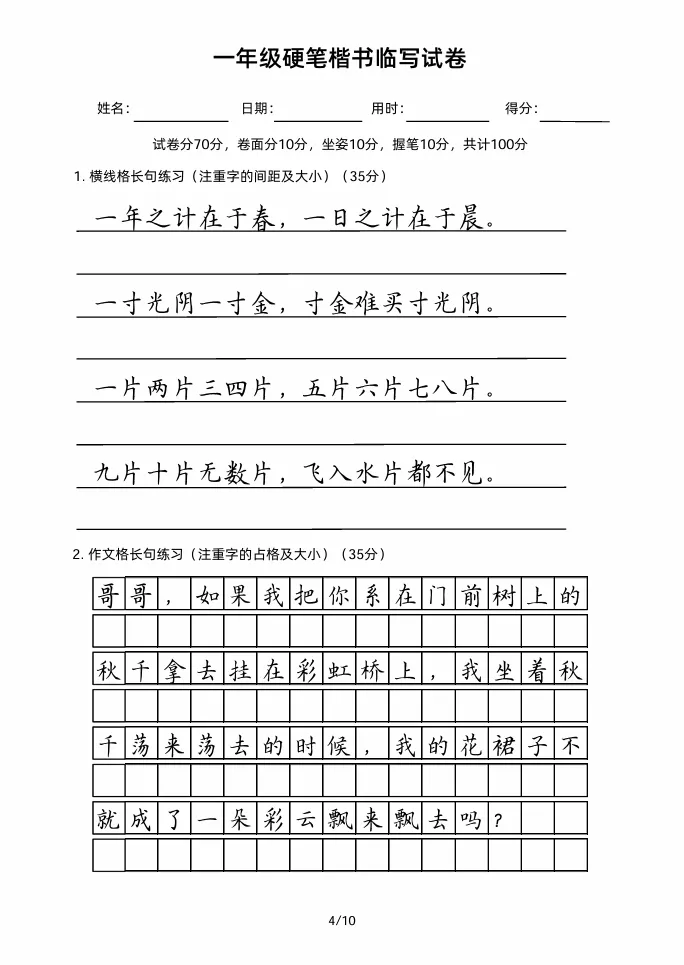 一年级硬笔楷书临写试卷
姓名: 日期: 用时: 得分:
试卷分70分，卷面分10分，坐姿10分，握笔10分，共计100分
1. 横线格长句练习（注重字的间距及大小）（35分）
一年之计在于春，一日之计在于晨。
一寸光阴一寸金，寸金难买寸光阴。
一片两片三四片，五片六片七八片。
九片十片无数片，飞入水片都不见。
2. 作文格长句练习（注重字的占格及大小）（35分）
哥哥，如果我把你系在门前树上的
秋千拿去挂在彩虹桥上，我坐着秋
千荡来荡去的时候，我的花裙子不
就成了一朵彩云飘来飘去吗？
4/10